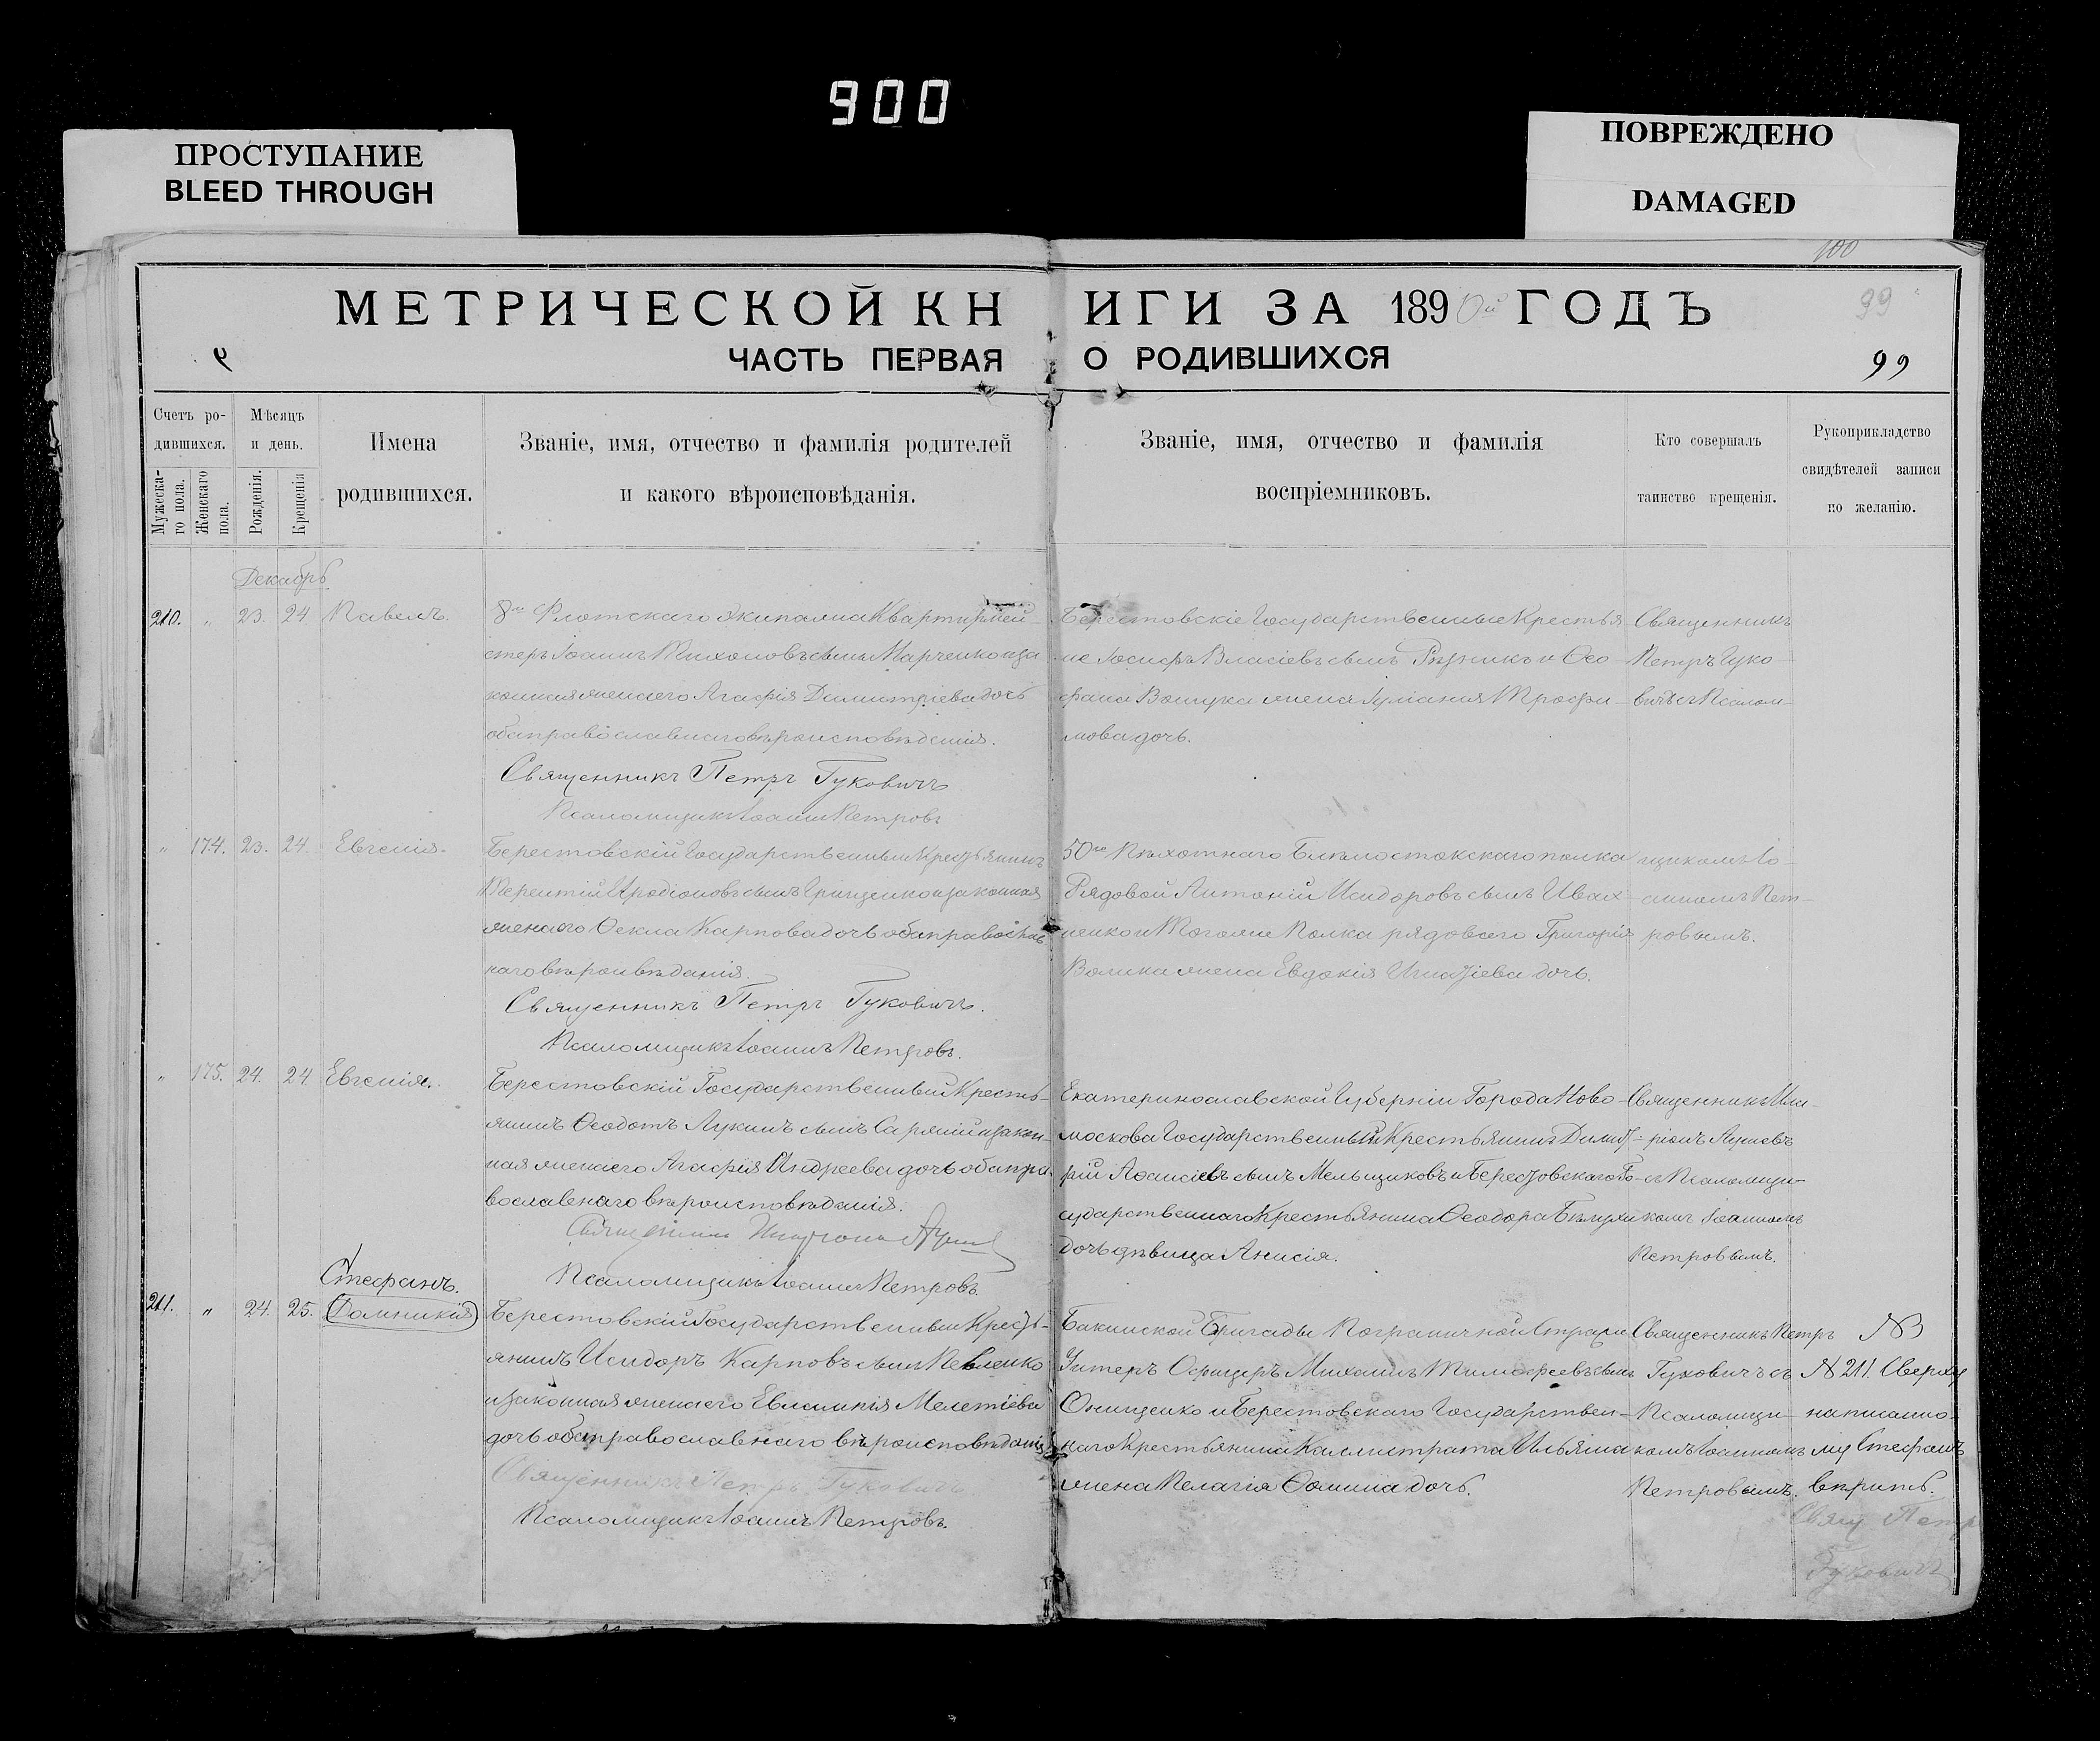 900
ПРОСТУПАНИЕ
BLEED THROUGH
ПОВРЕЖДЕНО
DAMAGED
100
МЕТРИЧЕСКОЙ КН ИГИ ЗА 1890й ГОДЪ
99
ЧАСТЬ ПЕРВАЯ О РОДИВШИХСЯ
99
Счетъ ро-
дившихся.
Мужеска-
го пола.
Женскаго
пола.
Мѣсяцъ
и день.
Рожденія.
Крещенія
Имена
родившихся.
Званіе, имя, отчество и фамилія родителей
и какого вѣроисповѣданія.
Званіе, имя, отчество и фамилія
воспріемниковъ.
Кто совершалъ
таинство крещенія.
Рукоприкладство
свидѣтелей записи
по желанію.
Декабрь
210. " 23. 24. Павелъ.
8го Флотскаго Экипажа Квартирмей-
стеръ Іоаннъ Тихоновъ сынъ Марченко и за
конная жена его Агафія Димитріева дочь
оба православнаго вѣроисповѣданія.
Священникъ Петръ Гуковичъ
Псаломщикъ Іоаннъ Петровъ
Берестовскіе Государственные Крестья
не Іосифъ Власіевъ сынъ Рѣзникъ и Ѳео
фана жена Трофи-
мова дочь.
Священникъ
Петръ Гуко
вичъ съ Псалом-
" 174. 23. 24. Евгенія.
Берестовскій Государственный Крестьянинъ
Терентій Иродіоновъ сынъ Грищенко и законная
жена его Ѳекла Карпова дочь оба православ
наго вѣроивѣданія.
Священникъ Петръ Гуковичъ.
Псаломщикъ Іоаннъ Петровъ.
50го Пѣхотнаго Бѣлостокскаго полка
Рядовой Антоній Исидоровъ сынъ Ивах
ненко и Тогоже Полка рядоваго Григорія
Волика жена Евдокія Игнатіева дочь.
щикомъ Іо-
анномъ Пет-
ровымъ.
" 175. 24. 24 Евгенія.
Берестовскій Государственный Кресть-
янинъ Ѳеодотъ Лукинъ сынъ и закон-
ная жена его Агафія Андреева дочь оба пра
вославнаго вѣроисповѣданія.
Псаломщикъ Іоаннъ Петровъ.
Екатеринославской Губерніи Города Ново-
москова Государственный Крестьянинъ Димит-
рій сынъ Мельщиковъ и Берестовскаго Го-
сударственнаго Крестьянина Ѳеодора
дочь дѣвица Анисія.
Священникъ
съ Псаломщи-
комъ Іоанномъ
Петровымъ.
Стефанъ.
211. " 24. 25. (Домникія)
Берестовскій Государственный Кресть-
янинъ Исидоръ Карповъ сынъ Павленко
и законная жена его Евлампія Мелетіева
дочь оба православнаго вѣроисповѣданія
Священникъ Петръ Гуковичъ
Псаломщикъ Іоаннъ Петровъ.
Бакинской Бригады Пограничной Стражи
Унтеръ Офицеръ Михаилъ Тимофеевъ сынъ
Онищенко и Берестовскаго Государствен-
наго Крестьянина Каллистрата Ильяша
жена Пелагія Ѳомина дочь.
Священникъ Петръ
Гуковичъ съ
Псаломщи-
комъ Іоанномъ
Петровымъ.
NB
№ 211. Сверху
написанно-
му Стефанъ
вѣрить.
Свящ Петр
Гуковичъ